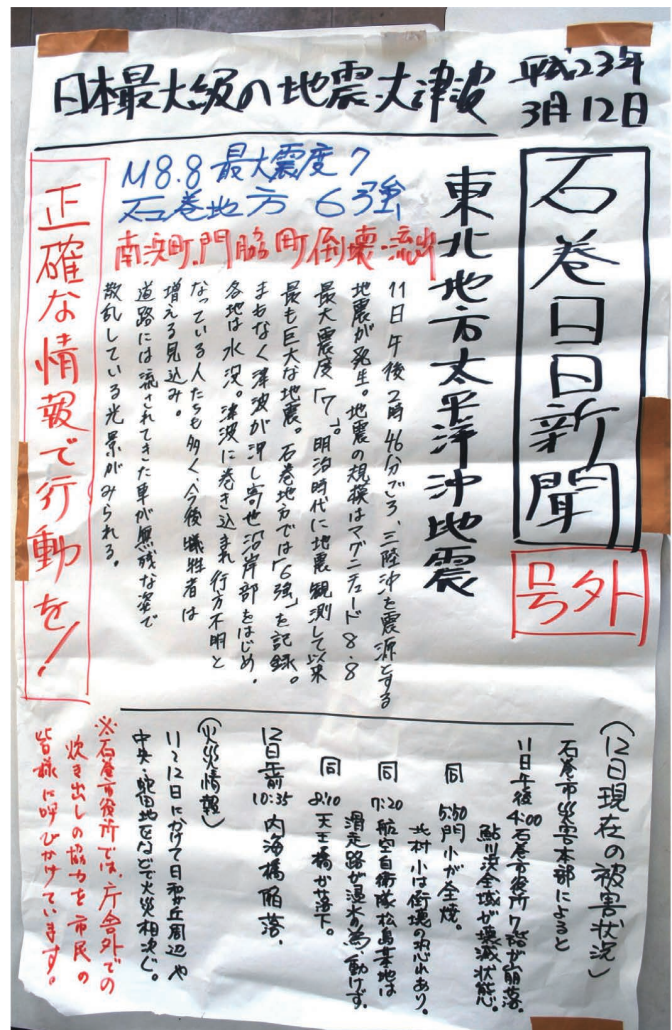 日本最大級の地震・大津波
平成23年
3月12日
石巻日日新聞
号外
東北地方太平洋沖地震
M8.8 最大震度7
石巻地方 6強
南浜町、門脇町倒壊・流出
11日午後2時46分ごろ、三陸沖を震源とする
地震が発生。地震の規模はマグニチュード8.8
最大震度「7」。明治時代に地震観測して以来
最も巨大な地震。石巻地方では「6強」を記録。
まもなく津波が押し寄せ沿岸部をはじめ、
各地は水没。津波に巻き込まれ行方不明と
なっている人たちも多く、今後犠牲者は
増える見込み。
道路には流されてきた車が無残な姿で
散乱している光景がみられる。
正確な情報で行動を!
(12日現在の被害状況)
石巻市災害本部によると
11日午後4:00 石巻市役所7階が崩落。
鮎川浜全域が壊滅状態。
同 5:50 門小が全焼。
北村小は倒壊の恐れあり。
同 7:20 航空自衛隊松島基地は
滑走路が浸水の為動けず。
同 8:10 天王橋が落下。
12日午前10:35 内海橋陥落。
(火災情報)
11~12日にかけて日和が丘周辺や
中央・蛇田地区などで火災相次ぐ。
※石巻市役所では、庁舎外での
炊き出しの協力を市民の
皆様に呼びかけています。